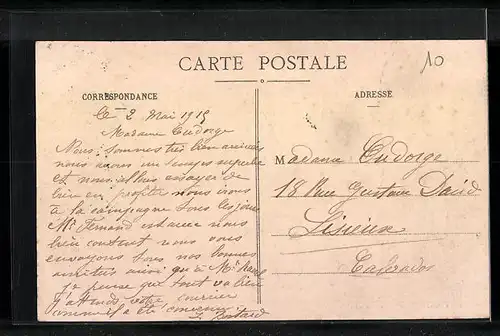 10
CARTE POSTALE
CORRESPONDANCE
ADRESSE
Le 2 Mai 1915
Madame Eudorge
Nous sommes très bien
nous avons un temps superbe
et nous allons essayer de
bien en profiter nous irons
à la campagne tous les jours
Mr Fernand est avec nous
bien content nous vous
envoyons tous nos bonnes
amitiés ainsi qu'à Mr
je pense que tout va bien
J'attends votre courrier
comme il a été convenu
Madame Eudorge
18 Rue Gustave David
Lisieux
Calvados